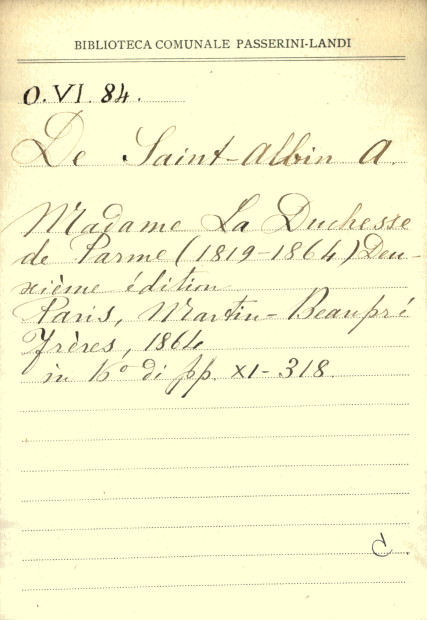 BIBLIOTECA COMUNALE PASSERINI-LANDI
O.VI.84.
De Saint-Albin A.
Madame La Duchesse
de Parme (1819-1864) Deu-
xième édition
Paris, Martin-Beaupré
Frères, 1864
in 16° di pp. XI-318
C.